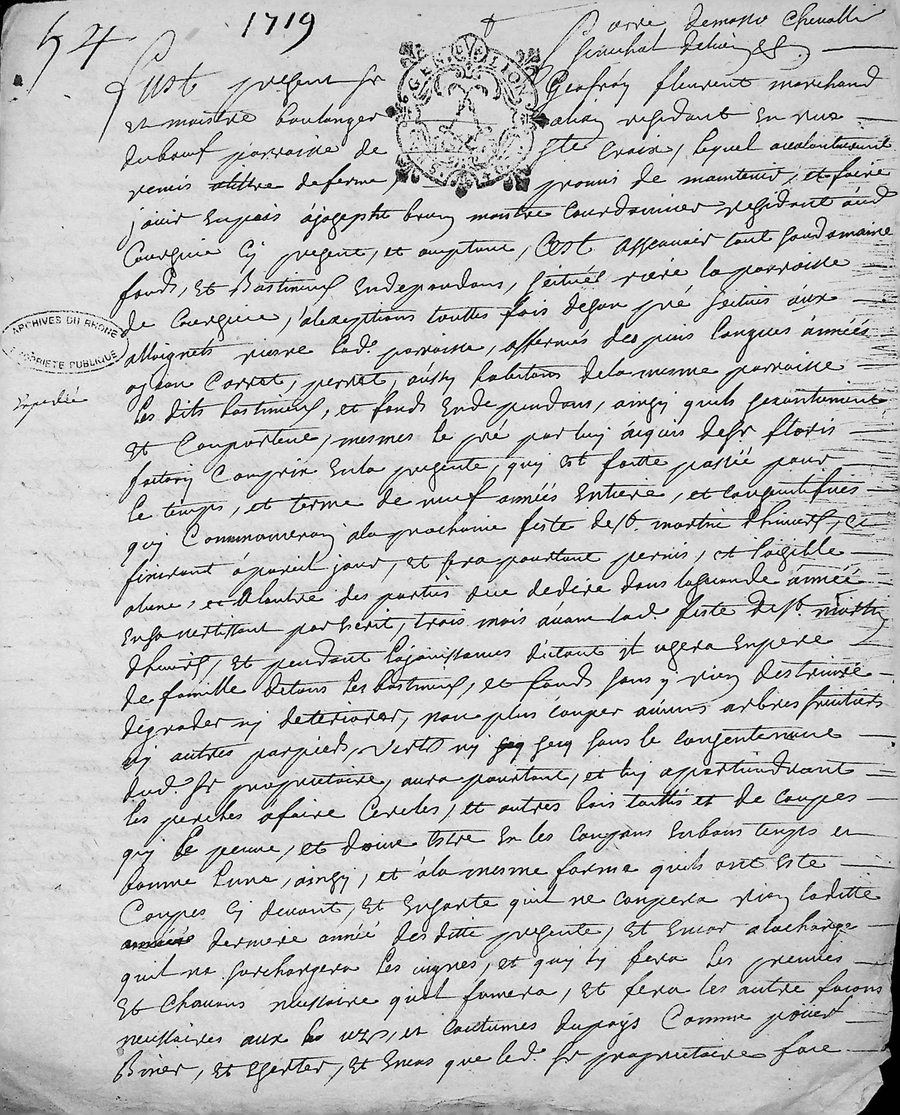 54
1719
demasso Chevallier
Senechal de Lion &c.
GEN DE LION
Fust present Sr Geofroy fleurent marchand
Et maistre boulanger resident En rue
duboeuf parroisse de Ste Croix, lequel a volontairement
remis a tiltre de ferme, promis de maintenir, et faire
jouir En paix a Joseph brun maistre Courdonnier residant aud
Courzieu Cy present, et acceptant, C'Est Asscavoir tout son domaine
fonds, Et Bastiments En dependans, scitués riere la parroisse
de Courzieu, a l'exeption touttes fois de son pré scitué aux
riere lad. parroisse, affermés depuis longues années
a Jean Carret, perret, aussy habitans de la mesme parroisse
les dits bastiments, et fonds En dependans, ainsy quils
Et Comportent, mesmes le pré par luy aquis de Sr floris
Compris En la presente, quy Est faitte passée pour
le temps, et terme de neuf années Entiere, et consequtifves
quy Commenceront a la prochaine feste de St. martin d'hivert, Et
finiront a pareil jour, et sera pourtant permis, et loizible
a l'une, et a l'autre des parties de dedire dans la année
En s'avertissant par Escrit, trois mois avant lad. feste de St. martin
d'hivert, Et pendant la jouissance d'iceux Il uzera En pere
de famille de tous les bastiments, et fonds sans y rien destruire
degrader ny deteriorer, non plus couper aucuns arbres fruitiers
ny autres par pieds, verts ny secq sans le consentement
dud. Sr proprietaire, aura pourtant, et luy apartiendront
les perches a faire Cercles, et autres bois taillis et de coupes
quy se peuve, et doive Estre En les coupans En bons temps et
bonne lune, ainsy, et a la mesme forme quils ont Este
Coupes Cy devant, Et En sorte quil ne coupera rien laditte
derniere année des ditte presente, Et Encor a la charge
quil ne surchargera les vignes, et quy luy fera les preuves
Et Chavons necessaire quil fumera, Et fera les autre facons
necessaires aux uz, et coutumes du pays Comme
Biner, Et Et Encor que led. Sr proprietaire fore
ARCHIVES DU RHÔNE
PROPRIETE PUBLIQUE
Expediée